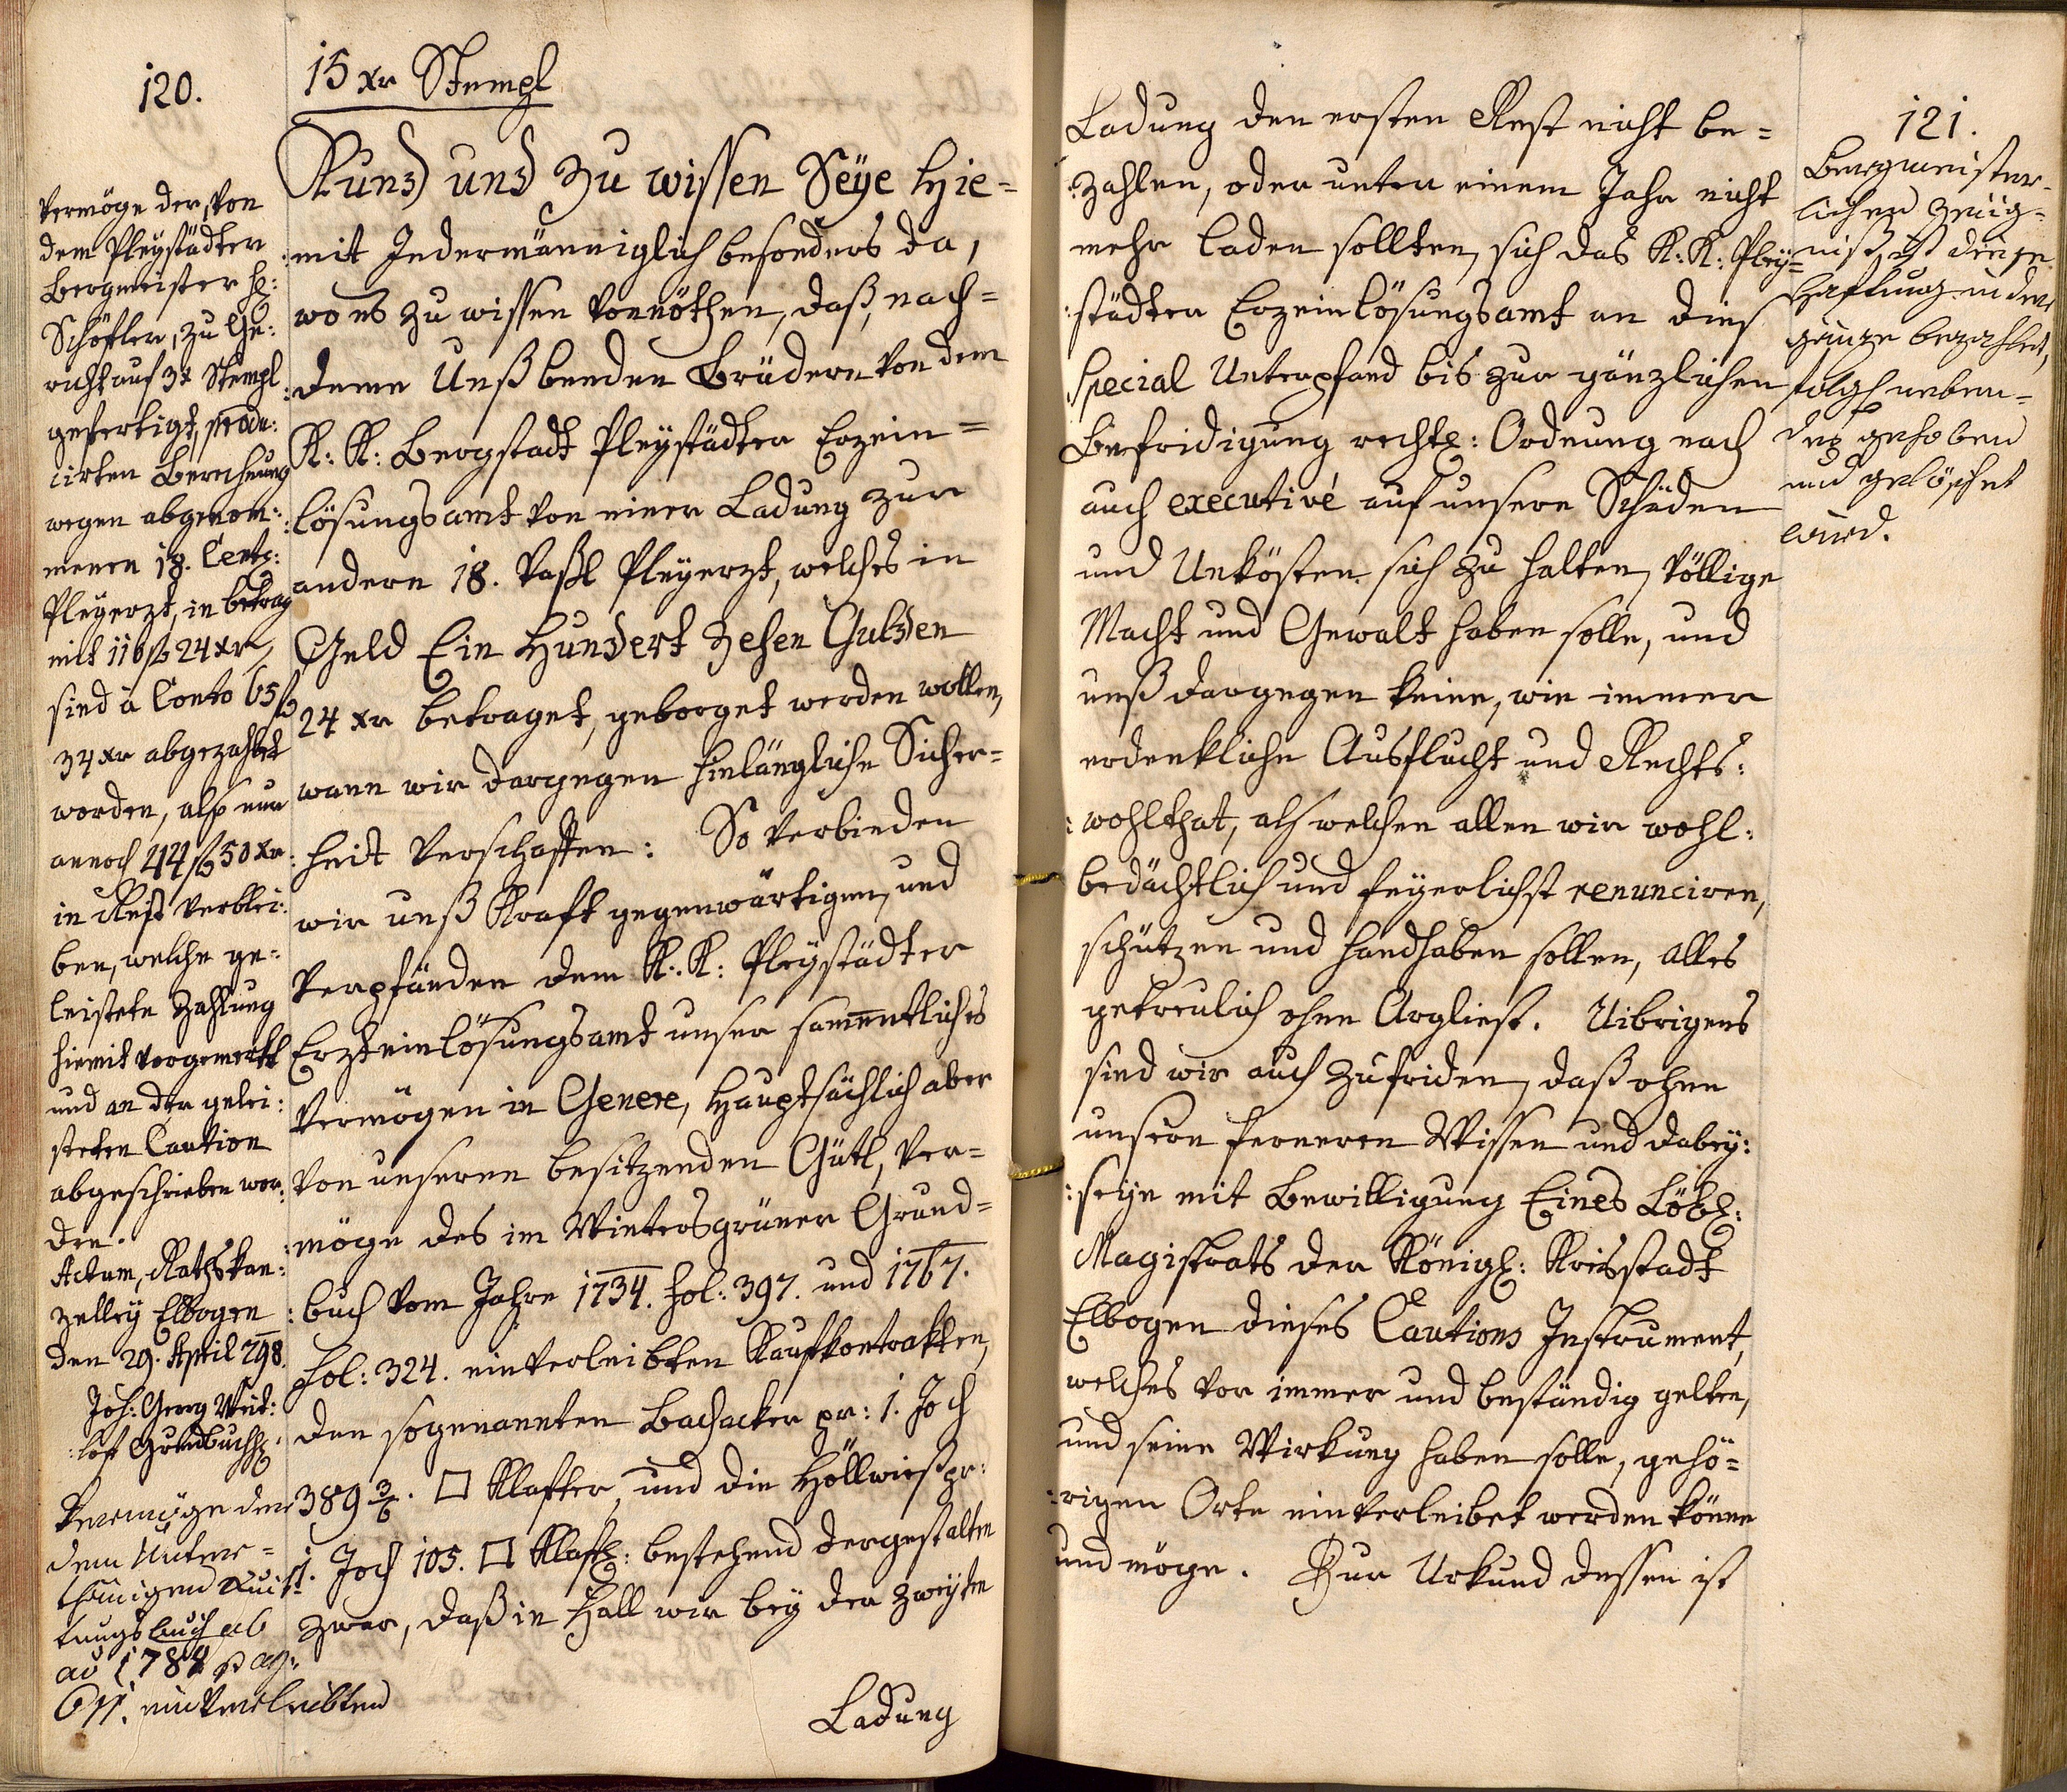 120.
15 xr Stempl
Kund und zu wissen Seÿe Hie=
:mit Jedermänniglich besonders da,
wo es zu wissen vonnöthen, daß, nach=
:deme Unß beeden Brüdern von dem
K: K: Bergstadt Pleystädter Erzein=
:lösungsamt von einer Ladung zur
andern 18. Vaßl Pleyerzt, welches in
Geld Ein Hundert Zehen Gulden
24 xr betraget, geborget werden wollen,
wann wir dargegen hinlängliche Sicher=
:heit verschaffen: So verbinden
wir unß Kraft gegenwärtigen, und
verpfänden dem K: K: Pleystädter
Erzteinlösungsamt unser sammentliches
Vermögen in Genere, Hauptsächlich aber
von unseren besitzenden Gütl, ver=
:möge des im Wintersgrüner Grund=
:buch vom Jahre 1734. fol: 397. und 1767.
fol: 324. einverleibten Kaufkontrakten,
den sogenannten Bachacker pr: 1. Joch
389 3/6. □ Klafter, und die Höllwieß pr:
1. Joch 105. □ Klaft: bestehend dergestalten
zwar, daß in Fall wir bey der zweyten
Ladung
Vermöge der, von
dem Pleystädter
Bergmeister H:
Schöffler, zu Ge:
richt auf 3x Stempl
gefertigt, produ:
cirten Berechnung
wegen abgenom:
menen 18. Centr:
Pleyerzt, in betrag
mit 110 f 24 xr,
sind à Conto 65 f
34 xr abgezahlet
worden, also nur
annoch 44 f 50 xr
in Rest verblei:
ben, welche ge:
leistete Zahlung
hiemit vorgemerkt
und an der gelei:
steten Caution
abgeschrieben wor:
den.
Actum, Rathskan:
zelley Elbogen
den 29. April 798.
Joh: Georg Weid:
:lof Grundbuchh:
Vermöge der
dem Unter=
thänigen Quit
tungsbuch ab
ao 1788 pag:
611. einverleibten
Ladung den ersten Rest nicht be=
:zahlen, oder unter einem Jahr nicht
mehr laden sollten, sich das K: K: Pley=
:städter Erzeinlösungsamt an dies
Special Unterpfand bis zur gänzlichen
Befridigung rechtl: Ordnung nach
auch executivé auf unsere Schäden
und Unkösten sich zu halten, völlige
Macht und Gewalt haben solle, und
unß dargegen keine, wie immer
erdenkliche Ausflucht und Rechts:
:wohlthat, als welchen allen wir wohl:
bedächtlich und feyerlichst renunciren,
schützen und handhaben sollen, alles
getreulich ohne Argliest. Uibrigens
sind wir auch zufriden, daß ohne
unsern ferneren Wissen und dabey:
:seyn mit Bewilligung Eines Löbl:
Magistrats der Königl: Kreisstadt
Elbogen dieses Cautions Instrument,
welches vor immer und beständig gelten,
und seine Wirkung haben solle, gehö=
:rigen Orts einverleibet werden könne
und möge. Zur Urkund dessen ist
121.
Bergmeister=
lichen Zeüg=
niß, ist diese
Haftung in der
gänze bezahlet,
folgl: neben=
gehoben
und gelöschet
wird.